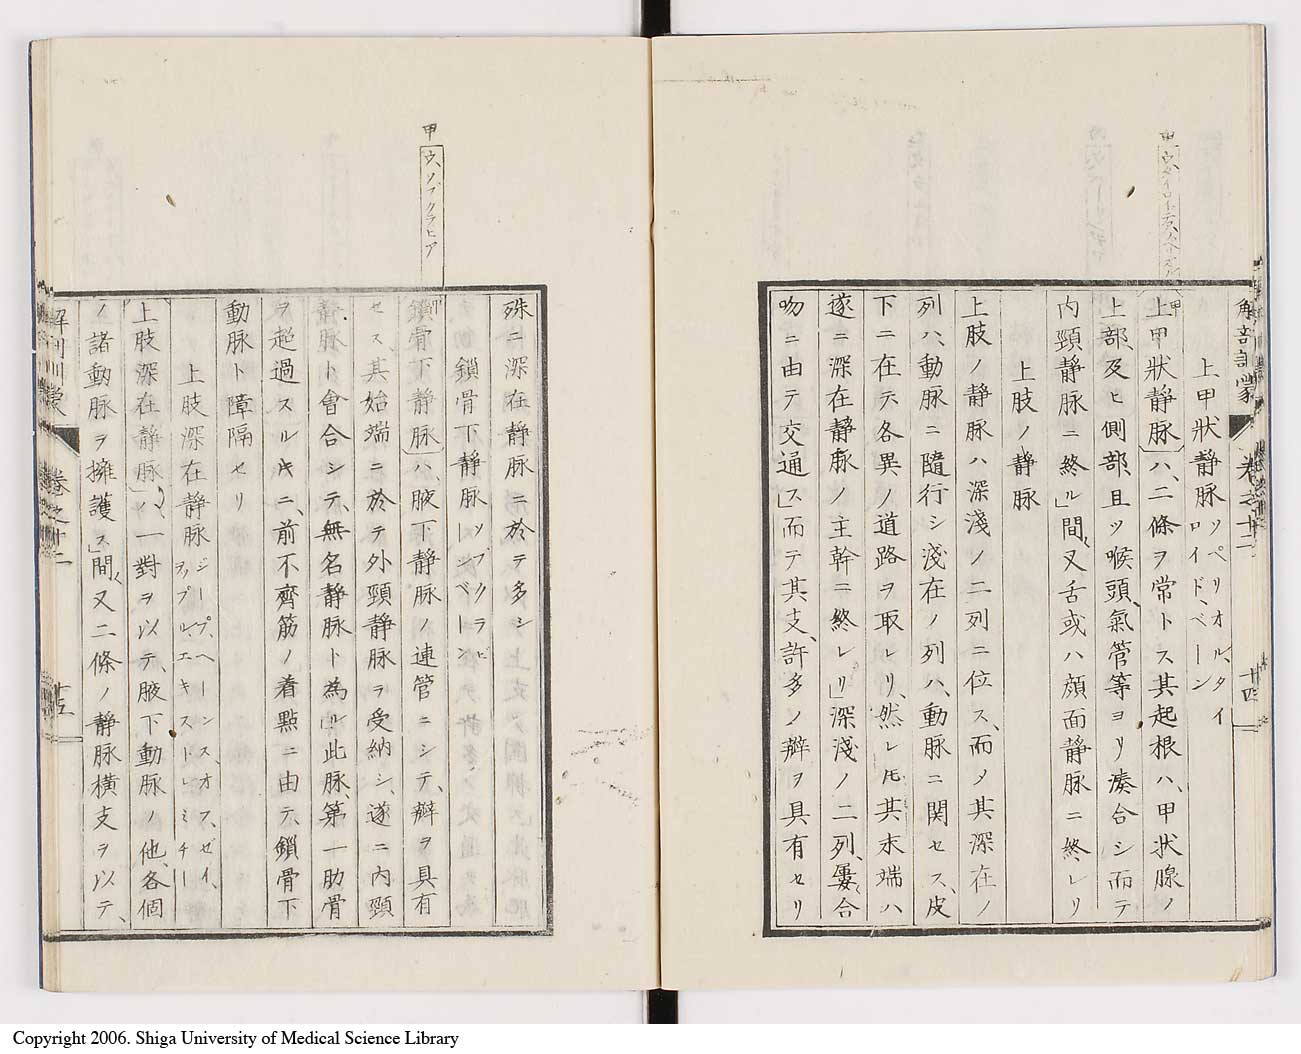 解剖訓蒙 卷之十二 十四
上甲狀静脉 ソペリオル、タイ
ロイド、ベーン
甲
上甲狀静脉ハ、二條ヲ常トス其起根ハ、甲状腺ノ
上部、及ヒ側部、且ツ喉頭、氣管等ヨリ湊合シ而テ
内頸静脉ニ終ル」間、又舌或ハ顔面静脉ニ終レリ
上肢ノ静脉
上肢ノ静脉ハ深淺ノ二列ニ位ス、而メ其深在ノ
列ハ、動脉ニ隨行シ淺在ノ列ハ、動脉ニ関セス、皮
下ニ在テ各異ノ道路ヲ取レリ、然レ𪜈其末端ハ
遂ニ深在静脉ノ主幹ニ終レリ」深淺ノ二列、屢合
吻ニ由テ交通ス」而テ其支、許多ノ辧ヲ具有セリ
殊ニ深在静脉ニ於テ多シ
甲
ウ、ソブクラヒア
鎖骨下静脉 ソブクラビ
ベーン
甲
鎖骨下静脉ハ、腋下静脉ノ連管ニシテ、辧ヲ具有
セス、其始端ニ於テ外頸静脉ヲ受納シ、遂ニ内頸
静脉ト會合シテ、無名静脉ト為ル」此脉、第一肋骨
ヲ超過スルキニ、前不齊筋ノ着點ニ由テ鎖骨下
動脉ト障隔セリ
上肢深在静脉 ジープ、ヘーンス、オフ、ゼイ、
ヲップル、エキストレミチー
上肢深在静脉ハ、一對ヲ以テ、腋下動脉ノ他、各個
ノ諸動脉ヲ擁護ス」間、又二條ノ静脉横支ヲ以テ、
解剖訓蒙 卷之十二 十五
Copyright 2006. Shiga University of Medical Science Library